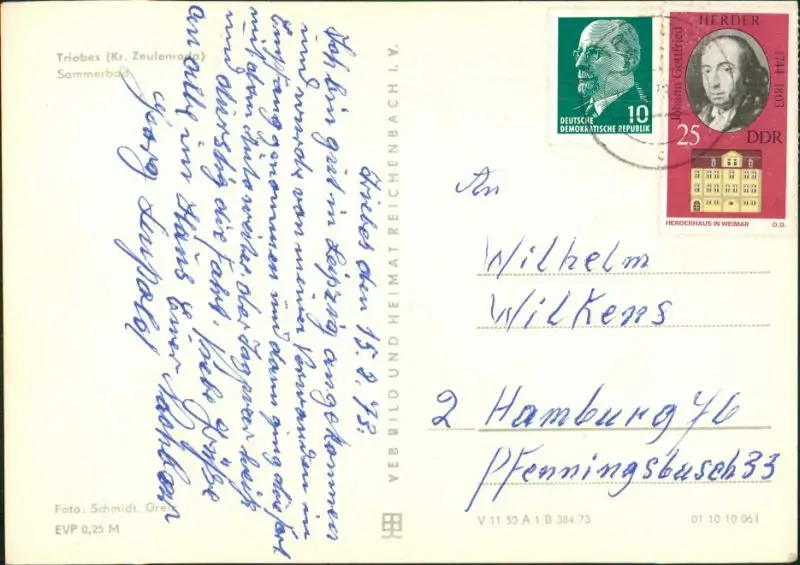 Triebes (Kr. Zeulenroda)
Sommerbad
Triebes den 15.8.73.
Ich bin gut in Leipzig angekommen
und wurde von meiner Verwanden in
Empfang genommen und dann ging die fart
mit dem Auto weiter der Tag war heiß
und durstig die Fahrt. Viele Grüße
an alle im Haus Euer Nachbar
Georg Luppold
Foto: Schmidt, Greiz
EVP 0,25 M
VEB BILD UND HEIMAT REICHENBACH I. V.
10
DEUTSCHE
DEMOKRATISCHE REPUBLIK
HERDER
Johann Gottfried
1744-1803
25
DDR
HERDERHAUS IN WEIMAR
D.D.
An
Wilhelm
Wilkens
2 Hamburg 76
Pfenningsbusch 33
V 11 50 A 1/B 384/73
01 10 10 061